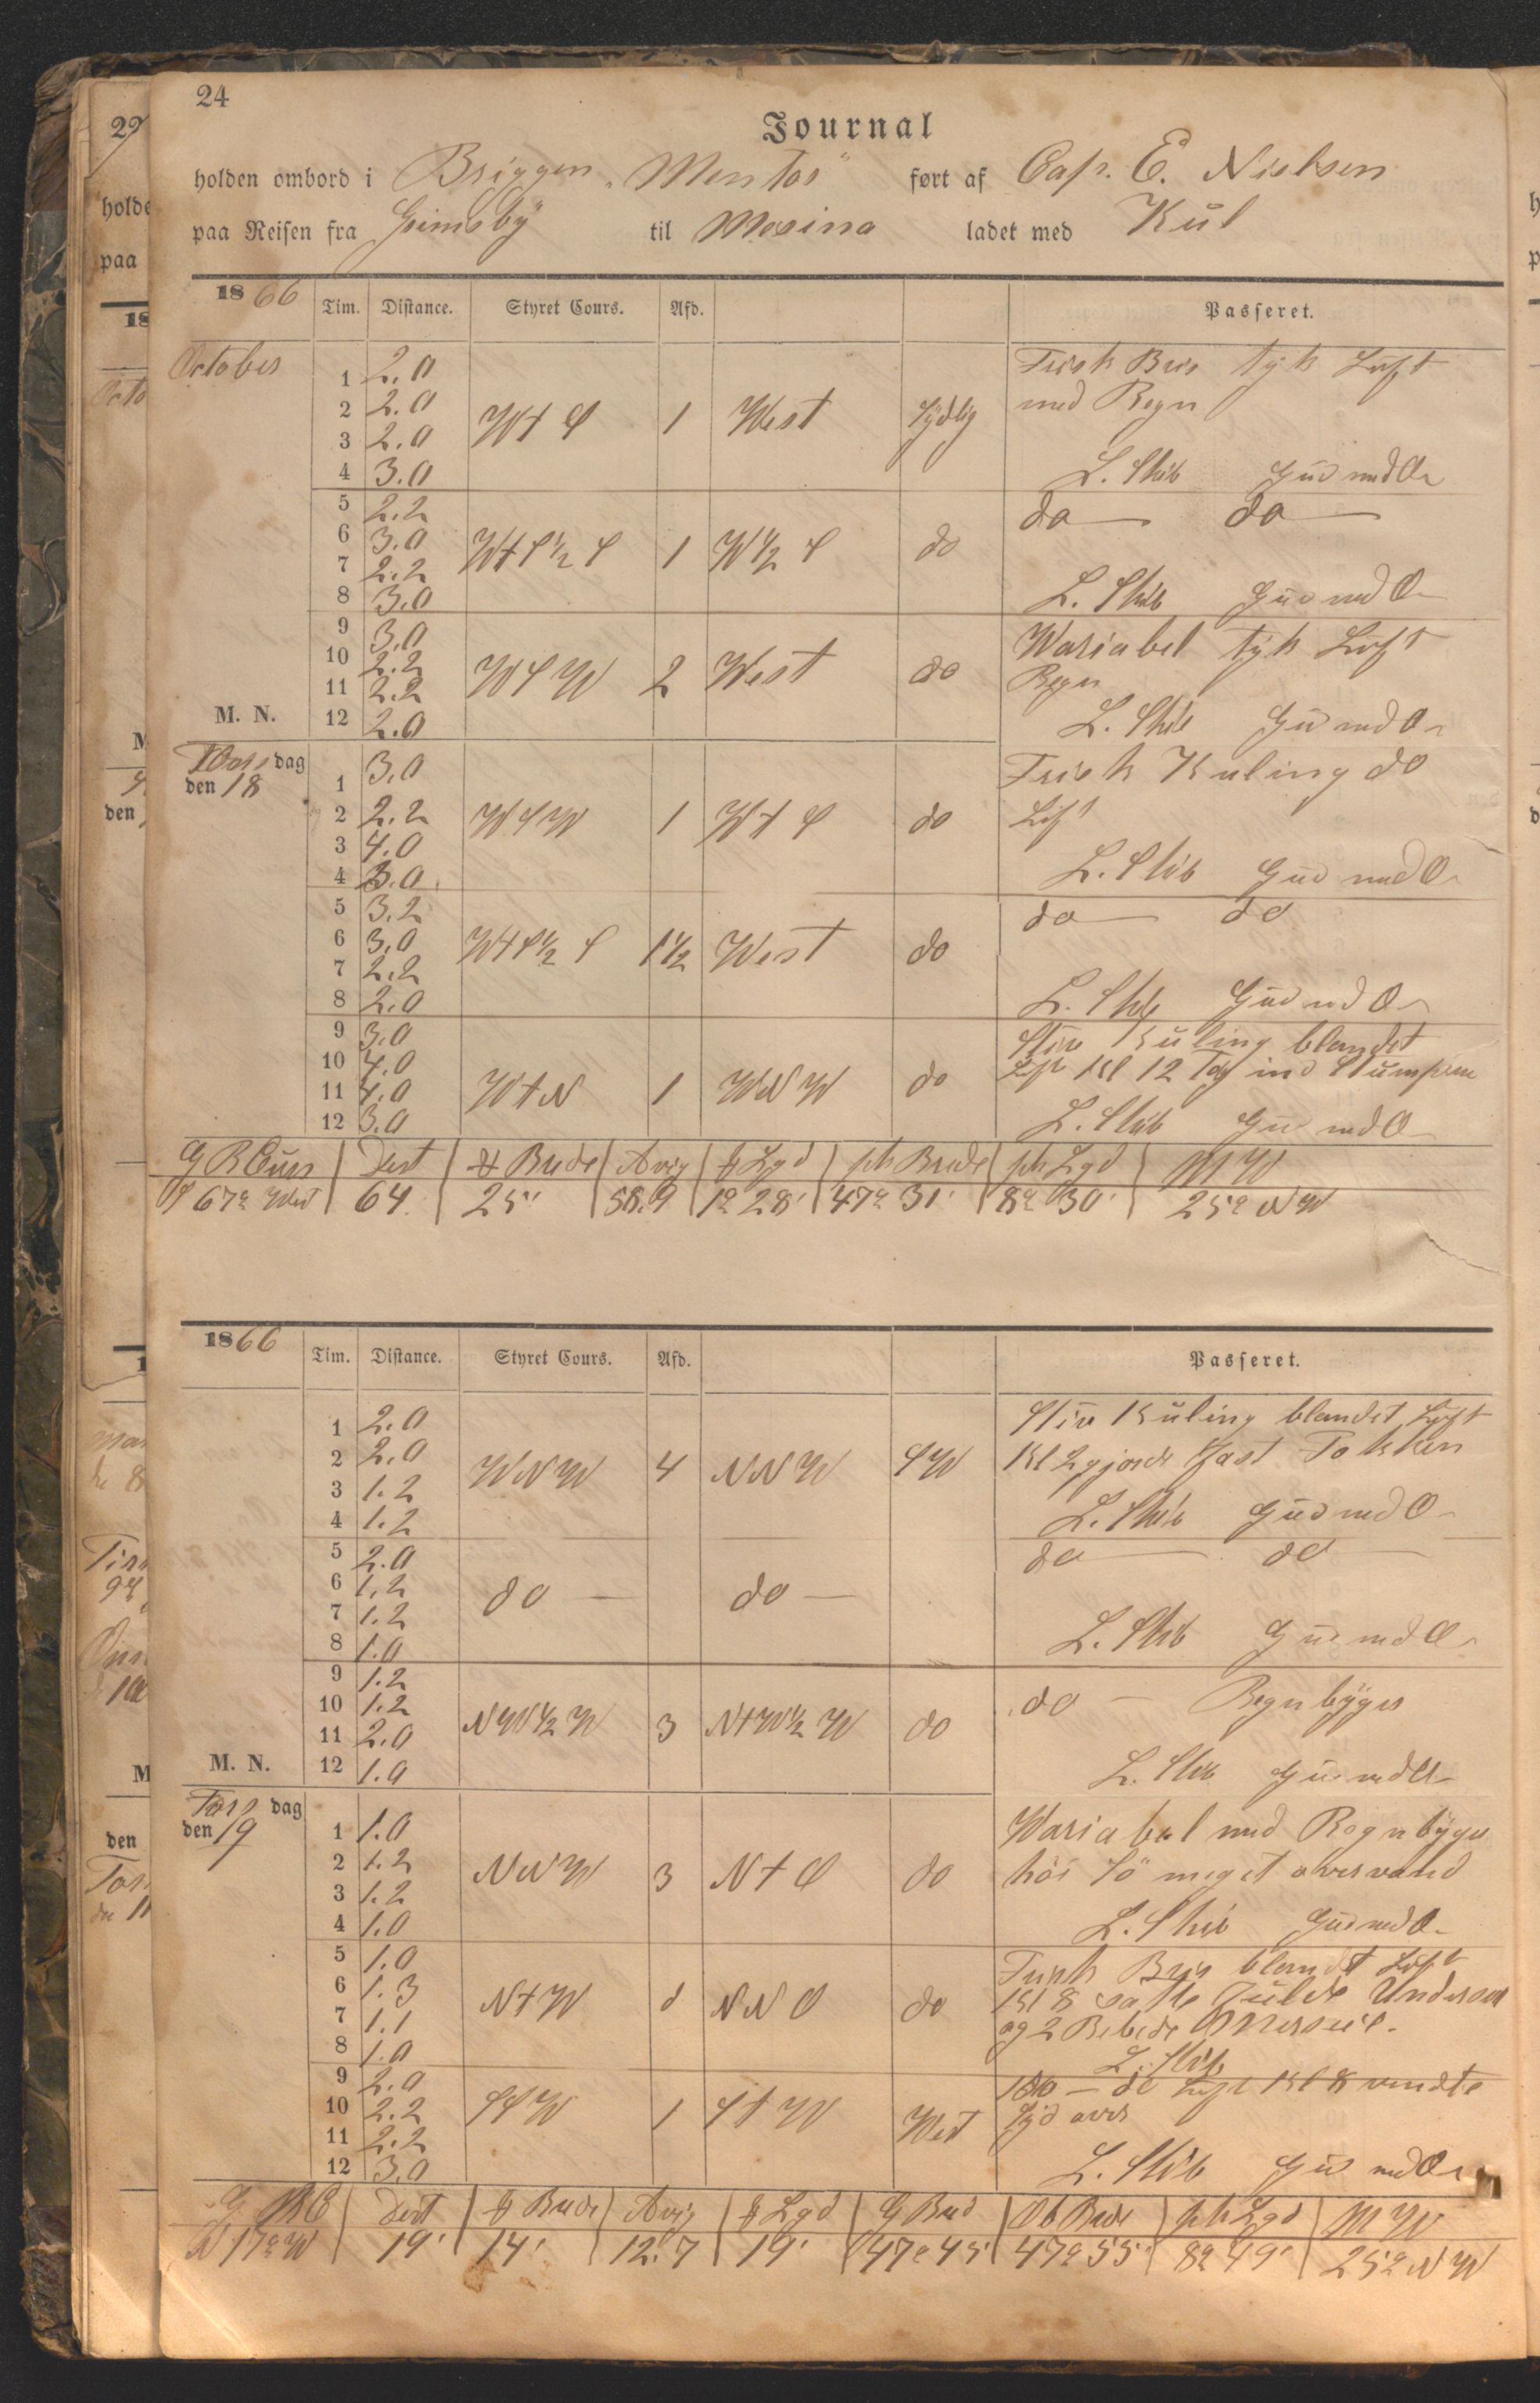 24
Journal
holden ombord i Briggen „Mentor" ført af Cap. E. Nielsen
paa Reisen fra Grimsby til Mesina ladet med Kul
1866 Tim. Distance. Styret Cours. Afd. Passeret.
October
1 2.0 Frisk Bris tyk Luft
2 2.0 W t S 1 West Sydlig med Regn
3 2.0
4 3.0 L. Skib Gud med Os
5 2.2 do do
6 3.0 W t S ½ S 1 W ½ S do
7 2.2
8 3.0 L. Skib Gud med Os
9 3.0 Wariabel tyk Luft
10 2.2 W S W 2 West do Regn
11 2.2
M. N. 12 2.0 L. Skib Gud med Os
Torsdag
den 18
1 3.0 Frisk Kuling do
2 2.2 W S W 1 W t S do Luft
3 4.0
4 3.0 L. Skib Gud med Os
5 3.2 do do
6 3.0 W t S ½ S 1½ West do
7 2.2
8 2.0 L. Skib Gud med Os
9 3.0 Stiv Kuling blandet
10 4.0 Kl 12 Tog ind
11 4.0 W t N 1 W N W do
12 3.0 L. Skib Gud med Os
Dest Brede Avig Lgd Brede Lgd M W
S 67° West 64 25' 58.9 1° 28' 47° 31' 8° 30' 25° N W
1866 Tim. Distance. Styret Cours. Afd. Passeret.
1 2.0 Stiv Kuling blandet Luft
2 2.0 W N W 4 N N W S W Kl 2 gjorde fast Fokken
3 1.2
4 1.2 L. Skib Gud med Os
5 2.0 do do
6 1.2 do do
7 1.2
8 1.0 L. Skib Gud med Os
9 1.2
10 1.2 N W ½ W 3 N t W ½ W do do Regnbyger
11 2.0
M. N. 12 1.0 L. Skib Gud med Os
dag
den 19
1 1.0 Wariabel med Regnbyger
2 1.2 N N W 3 N t O do høi Sø meget overvand
3 1.2
4 1.0 L. Skib Gud med Os
5 1.0 Frisk Bris blandet Luft
6 1.3 N t W N N O do Kl 8 satte
7 1.1 og 2 Rebede
8 1.0 L. Skib
9 2.0 do Kl 8 vendte
10 2.2 S S W 1 S t W West Syd over
11 2.2
12 3.0 L. Skib Gud med Os
Dest Brede Avig Lgd G Bred Ob Brede Lgd M W
N 17° W 19' 14' 12.7 19' 47° 45' 47° 55' 8° 49' 25° N W